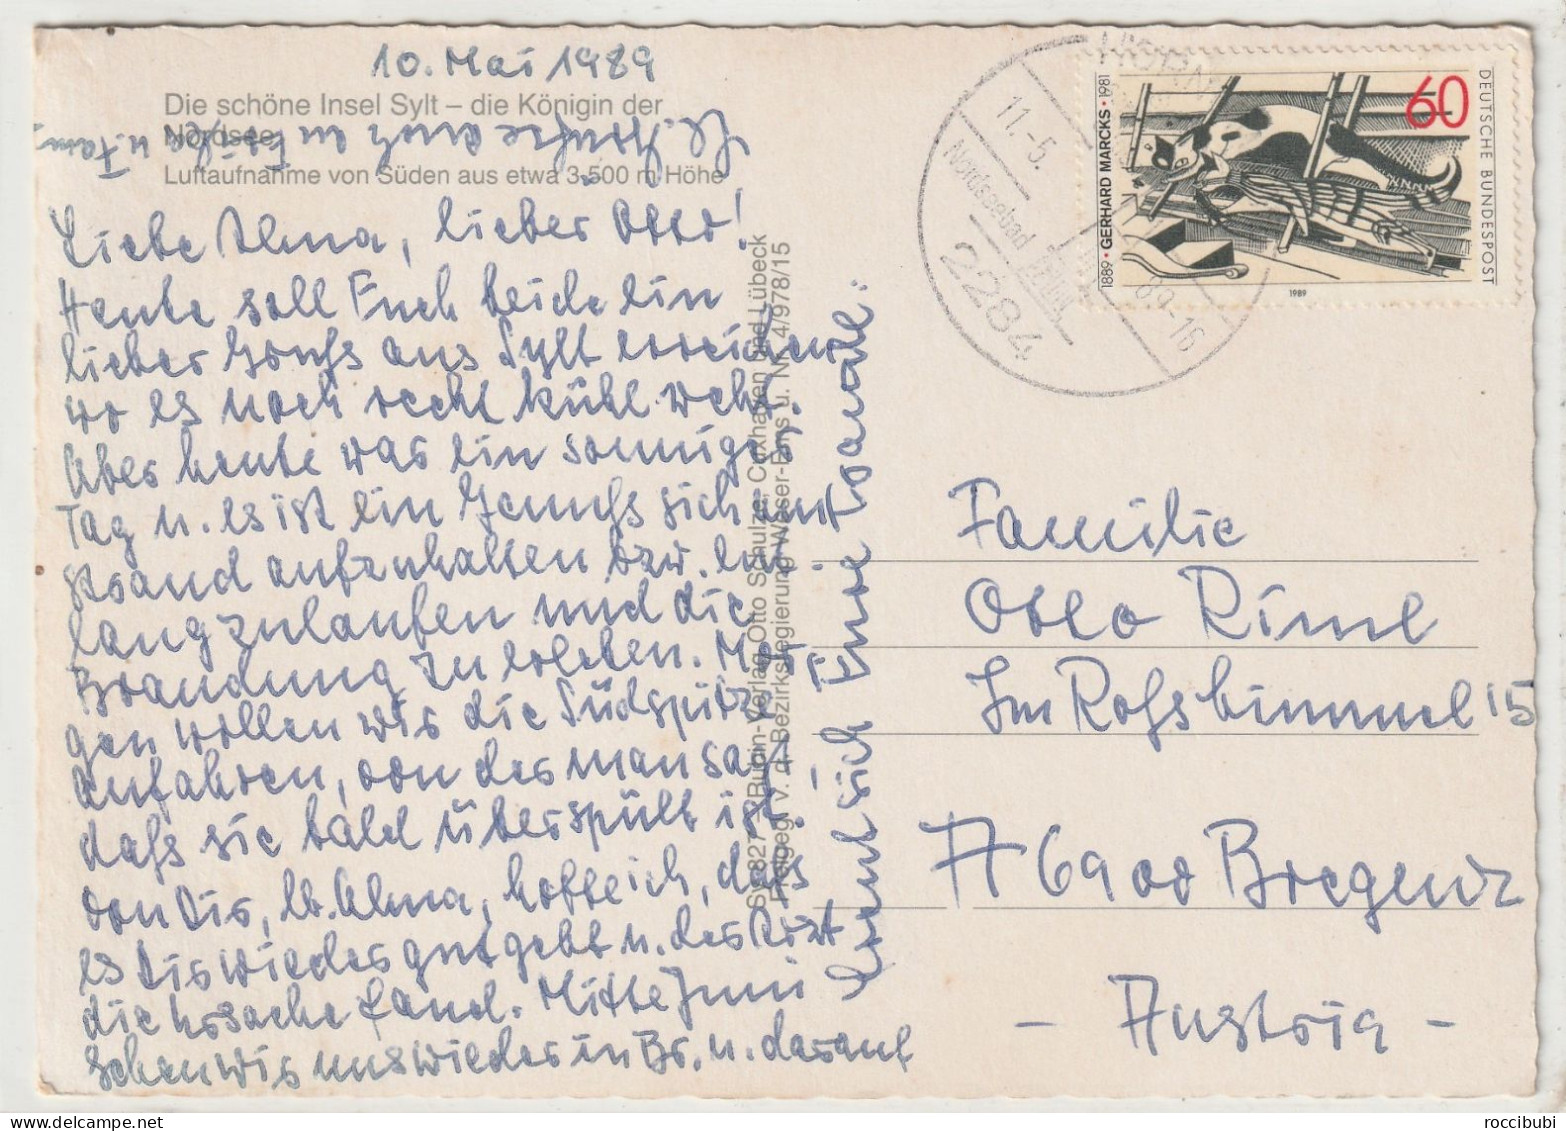 10. Mai 1989
Die schöne Insel Sylt – die Königin der
Nordsee
Luftaufnahme von Süden aus etwa 3.500 m Höhe
Liebe Alma, lieber Otto!
Heute soll Euch beide ein
lieber Gruß aus Sylt erreichen
wo es noch recht kühl weht.
Aber heute war ein sonniger
Tag u. es ist ein Genuß sich am
Strand aufzuhalten bzw. ent-
langzulaufen und die
Brandung zu erleben. Mor-
gen wollen wir die Südspitze
anfahren, von der man sagt,
daß sie bald überspült ist!
Von Dir, lb. Alma, hoffe ich, daß
es Dir wieder gut geht u. der Arzt
die Ursache fand. Mitte Juni
sehen wir uns wieder in Br. u. darauf
freut sich Eure
Hl. Grüße auch an u. Fam.
Sy 827 – Rubin-Verlag Otto Schulze, Cuxhaven und Lübeck
Freigeg. v. d. Bezirksregierung Weser-Ems u. Nr. 4/978/15
HÖRN
11.-5.
89-16
Nordseebad
2284
60
DEUTSCHE BUNDESPOST
1889 • GERHARD MARCKS • 1981
1989
Familie
Otto Riml
Im Roßbimmel 15
A 6900 Bregenz
- Austria -
roccibubi